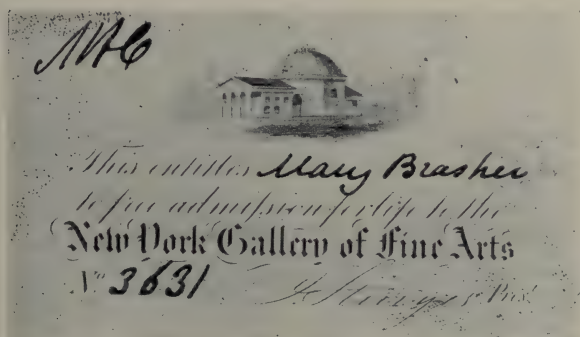 This entitles Mary Brasher
to free admission for life to the
New York Gallery of Fine Arts
No 3631
Sturges Prest